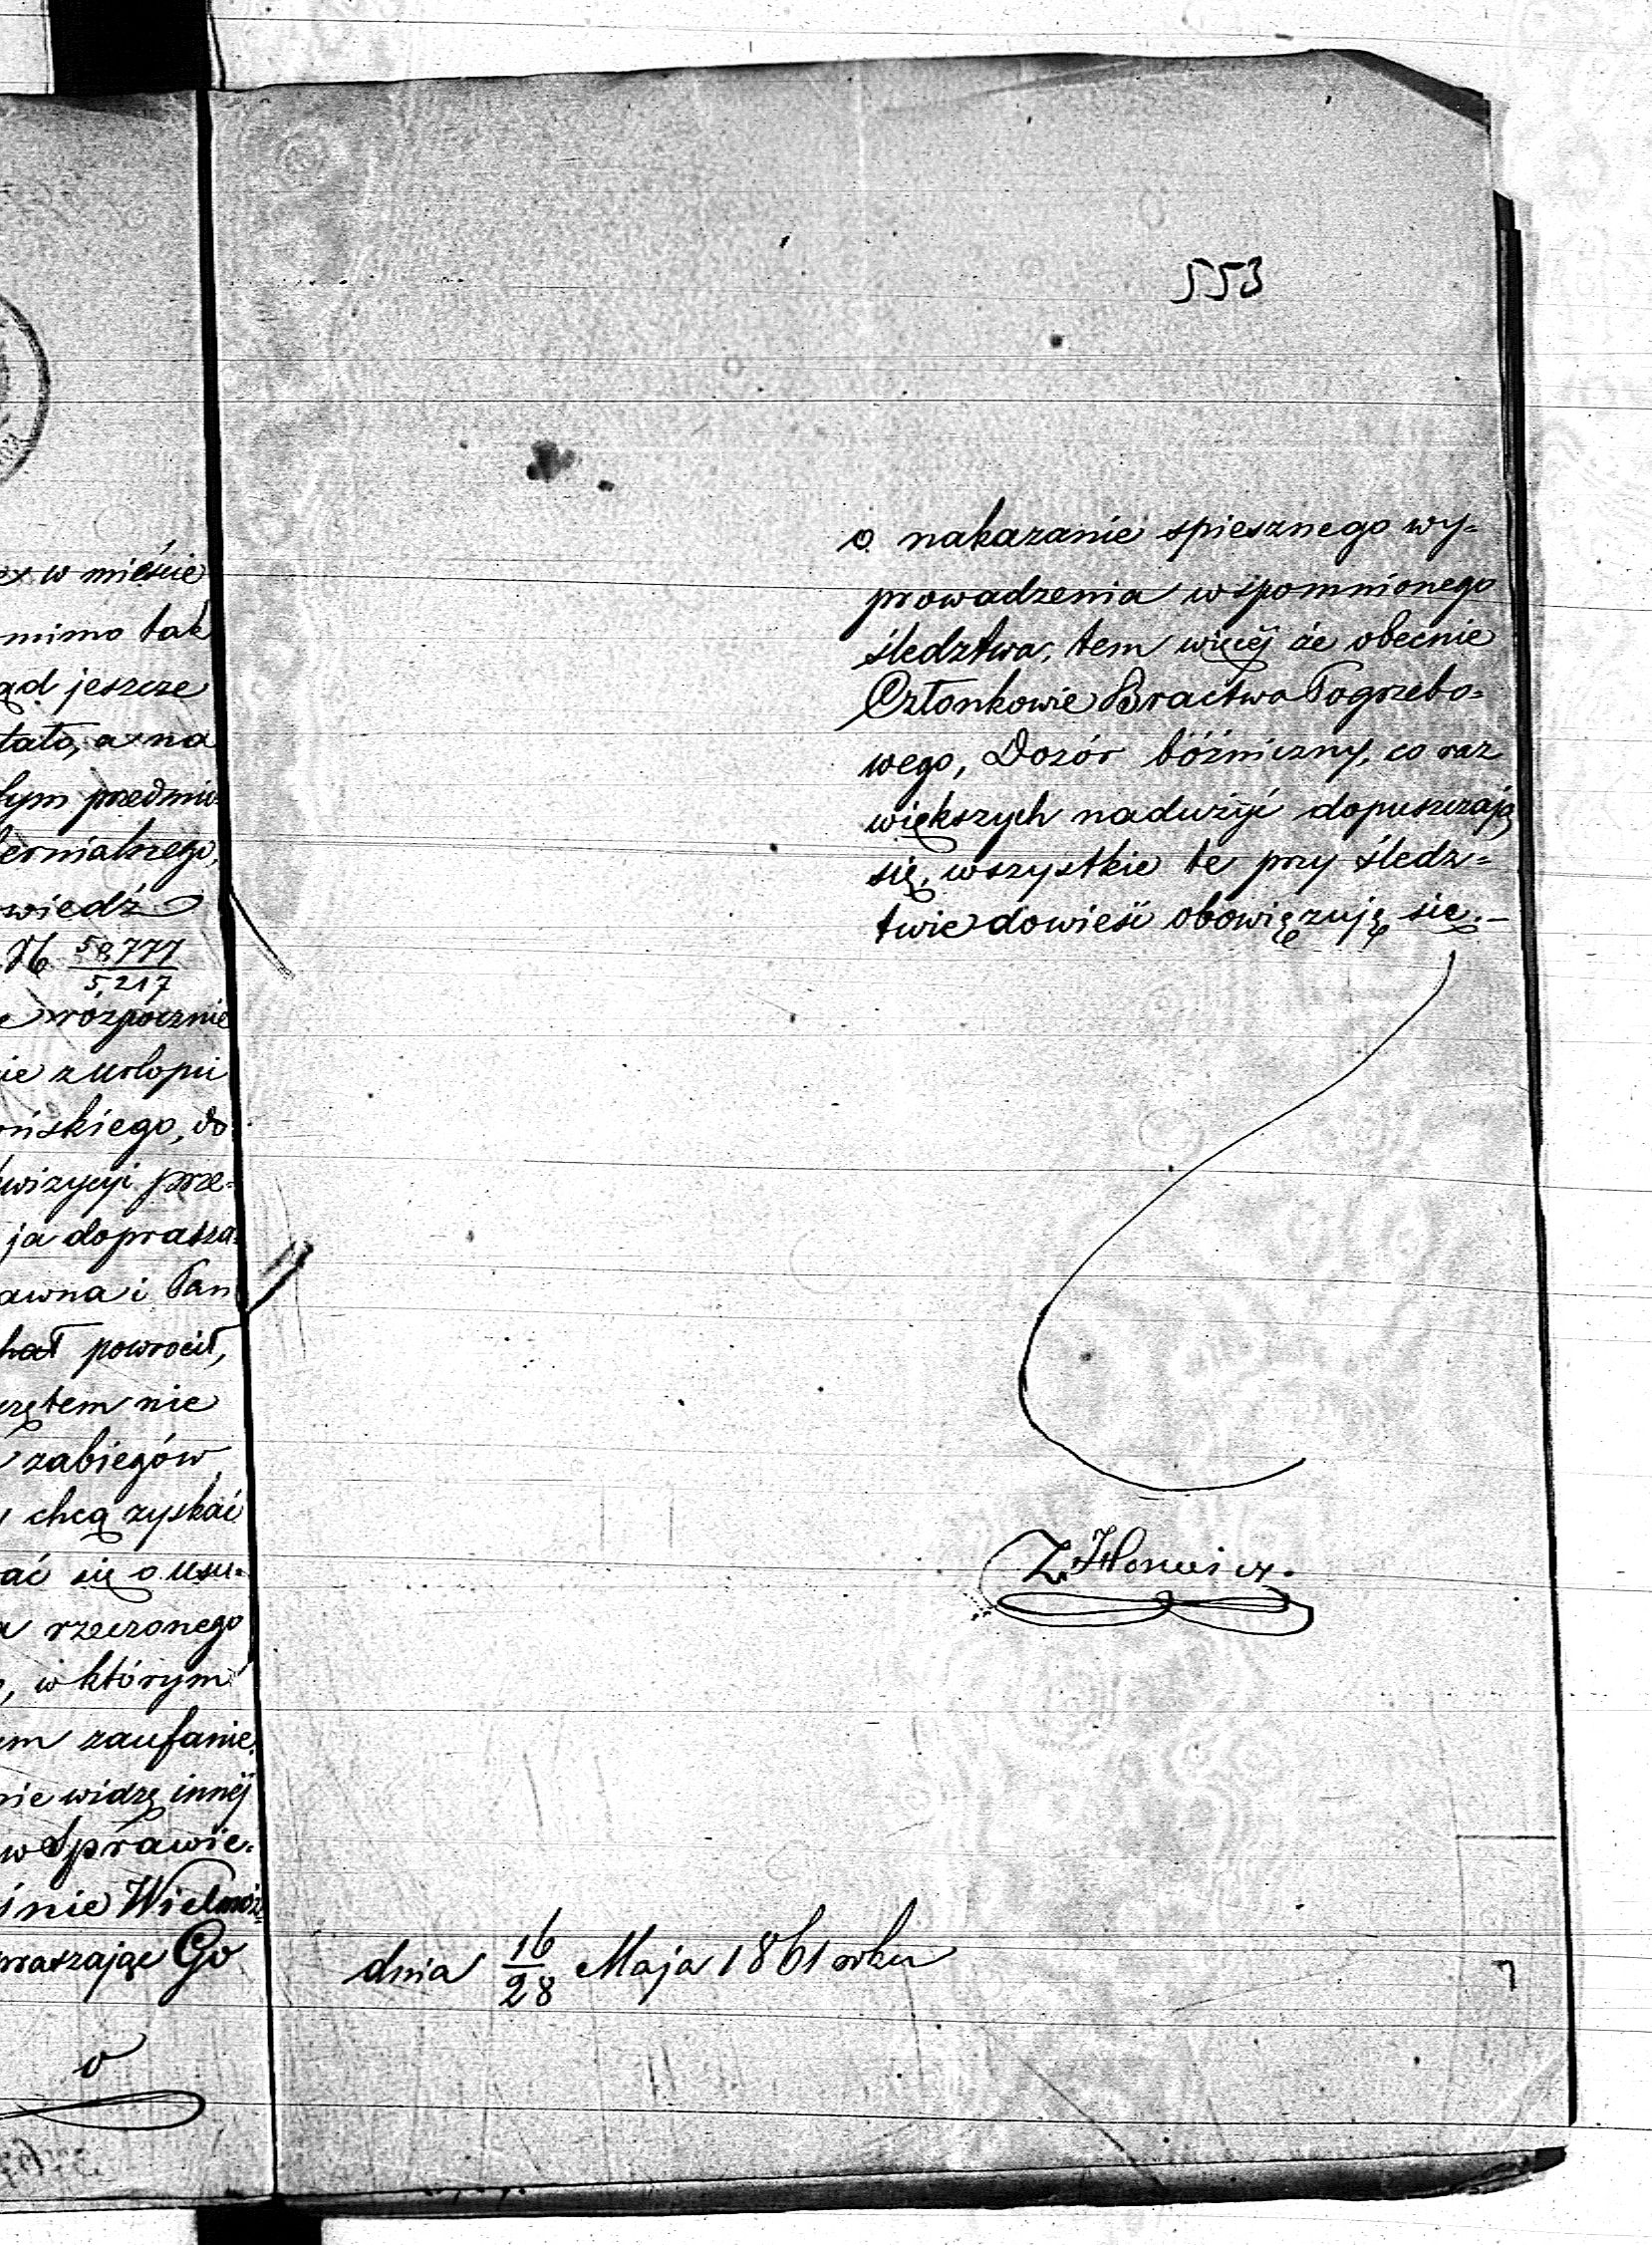 w mieście
mimo tak
jeszcze
a na
tym przedmio-
wiedź
№ 58,777
5,217
rozpocznie
z urlopu
do
prze-
ja doprasza
i Pan
powrocił,
nie
zabiegów
chcą zyskać
się o usu-
rzeczonego
w którym
zaufanie
nie widzę innéj
w Sprawie-
Wielmoż-
Go
o
553
o nakazanie spiesznego wy-
prowadzenia wspomnionego
śledztwa, tem więcéj że obecnie
Członkowie Bractwa Pogrzebo-
wego, Dozór bóżniczny, co raz
większych nadużyć dopuszczają
się, wszystkie te przy śledz-
twie dowieść obowięzuję się.–
Z.
dnia 16/28 Maja 1861 roku